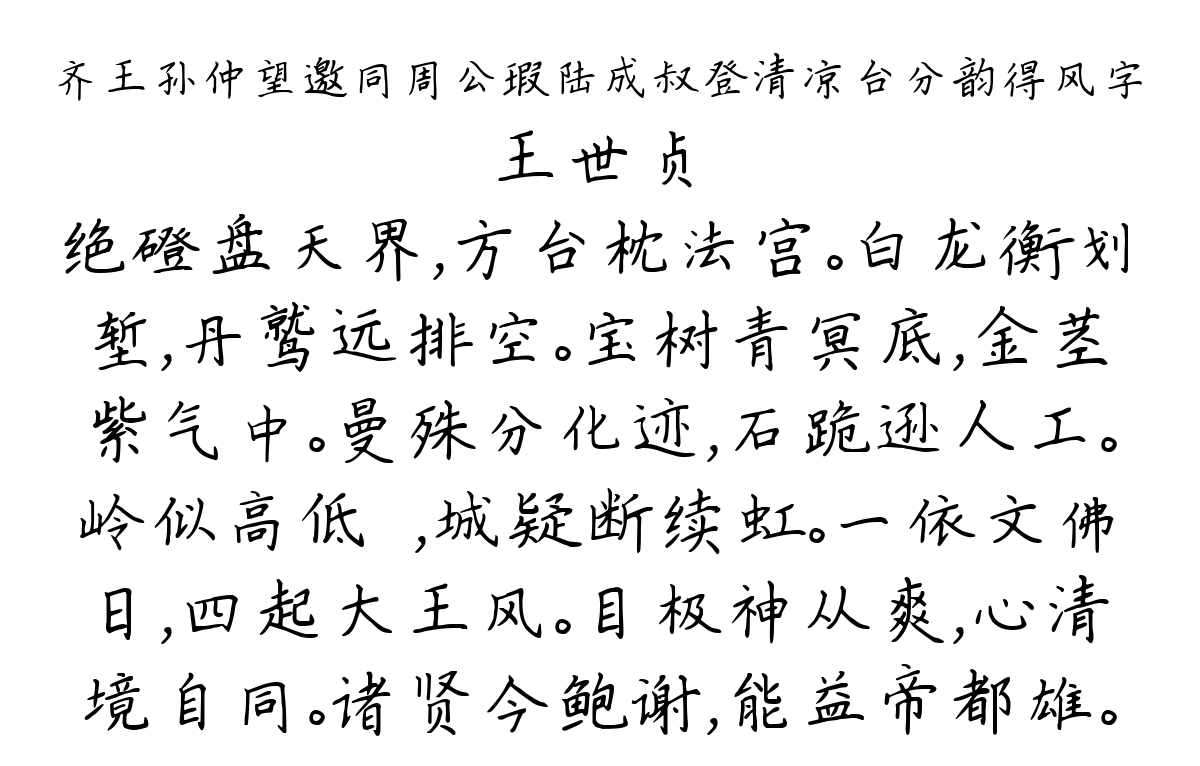 齐王孙仲望邀同周公瑕陆成叔登清凉台分韵得风字
王世贞
绝磴盘天界,方台枕法宫。白龙衡划
堑,丹鹫远排空。宝树青冥底,金茎
紫气中。曼殊分化迹,石跪逊人工。
岭似高低 ,城疑断续虹。一依文佛
日,四起大王风。目极神从爽,心清
境自同。诸贤今鲍谢,能益帝都雄。